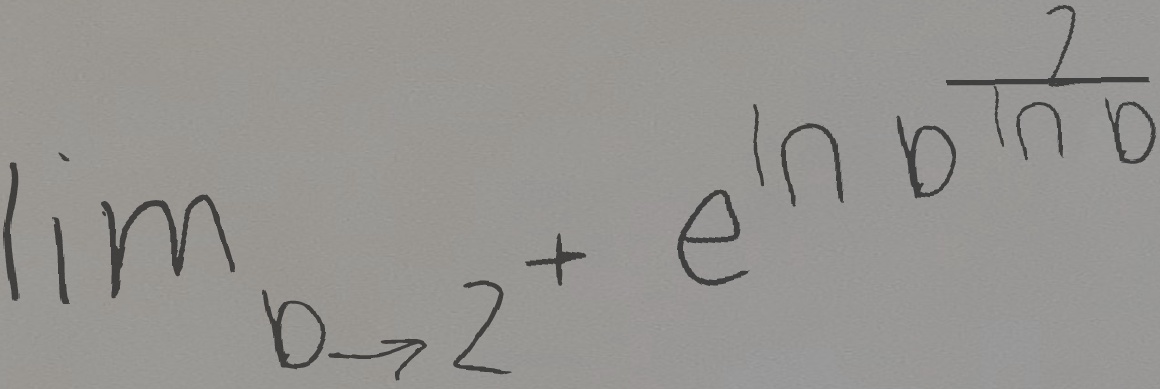 \lim_{b \to 2^{+}} e^{\ln b^{\frac{7}{\ln b}}}